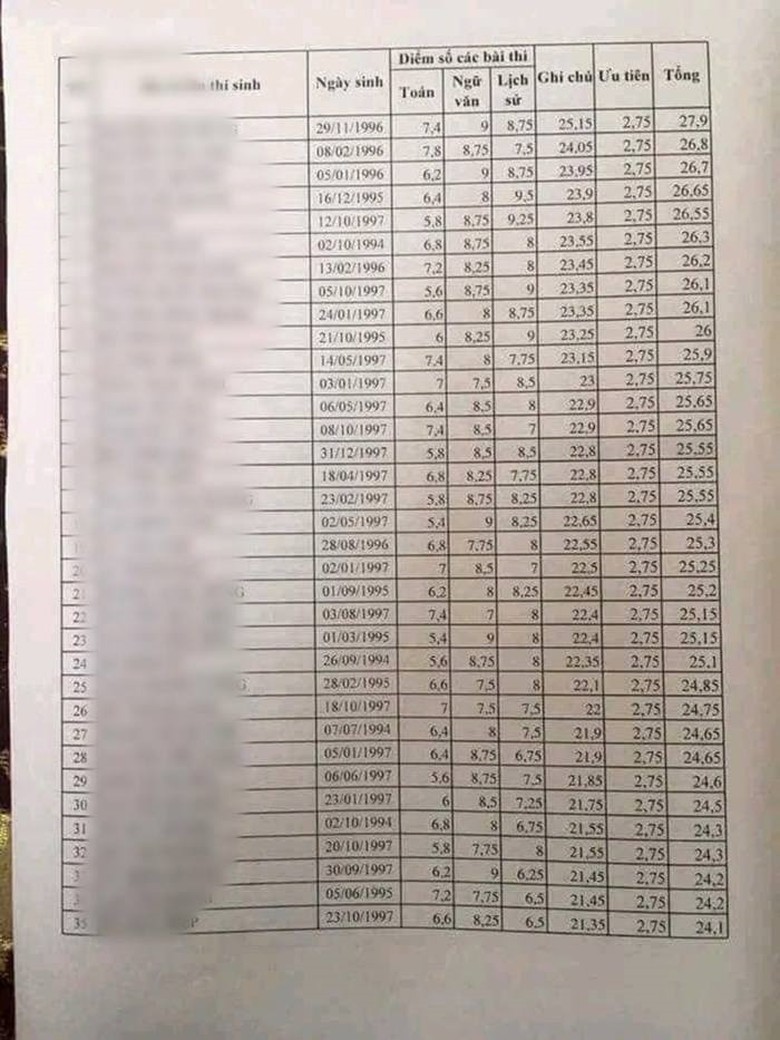 thí sinh Ngày sinh Điểm số các bài thi Ghi chú Ưu tiên Tổng
Toán Ngữ văn Lịch sử
29/11/1996 7,4 9 8,75 25,15 2,75 27,9
08/02/1996 7,8 8,75 7,5 24,05 2,75 26,8
05/01/1996 6,2 9 8,75 23,95 2,75 26,7
16/12/1995 6,4 8 9,5 23,9 2,75 26,65
12/10/1997 5,8 8,75 9,25 23,8 2,75 26,55
02/10/1994 6,8 8,75 8 23,55 2,75 26,3
13/02/1996 7,2 8,25 8 23,45 2,75 26,2
05/10/1997 5,6 8,75 9 23,35 2,75 26,1
24/01/1997 6,6 8 8,75 23,35 2,75 26,1
21/10/1995 6 8,25 9 23,25 2,75 26
14/05/1997 7,4 8 7,75 23,15 2,75 25,9
03/01/1997 7 7,5 8,5 23 2,75 25,75
06/05/1997 6,4 8,5 8 22,9 2,75 25,65
08/10/1997 7,4 8,5 7 22,9 2,75 25,65
31/12/1997 5,8 8,5 8,5 22,8 2,75 25,55
18/04/1997 6,8 8,25 7,75 22,8 2,75 25,55
23/02/1997 5,8 8,75 8,25 22,8 2,75 25,55
02/05/1997 5,4 9 8,25 22,65 2,75 25,4
28/08/1996 6,8 7,75 8 22,55 2,75 25,3
02/01/1997 7 8,5 7 22,5 2,75 25,25
G 01/09/1995 6,2 8 8,25 22,45 2,75 25,2
22 03/08/1997 7,4 7 8 22,4 2,75 25,15
23 01/03/1995 5,4 9 8 22,4 2,75 25,15
24 26/09/1994 5,6 8,75 8 22,35 2,75 25,1
25 G 28/02/1995 6,6 7,5 8 22,1 2,75 24,85
26 18/10/1997 7 7,5 7,5 22 2,75 24,75
27 07/07/1994 6,4 8 7,5 21,9 2,75 24,65
28 05/01/1997 6,4 8,75 6,75 21,9 2,75 24,65
29 06/06/1997 5,6 8,75 7,5 21,85 2,75 24,6
30 23/01/1997 6 8,5 7,25 21,75 2,75 24,5
31 02/10/1994 6,8 8 6,75 21,55 2,75 24,3
32 20/10/1997 5,8 7,75 8 21,55 2,75 24,3
30/09/1997 6,2 9 6,25 21,45 2,75 24,2
05/06/1995 7,2 7,75 6,5 21,45 2,75 24,2
35 P 23/10/1997 6,6 8,25 6,5 21,35 2,75 24,1